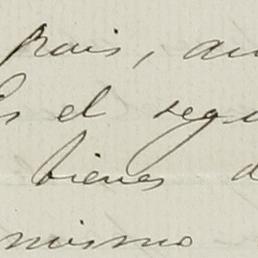 pais, au
Es el segu
bienes d
mismo